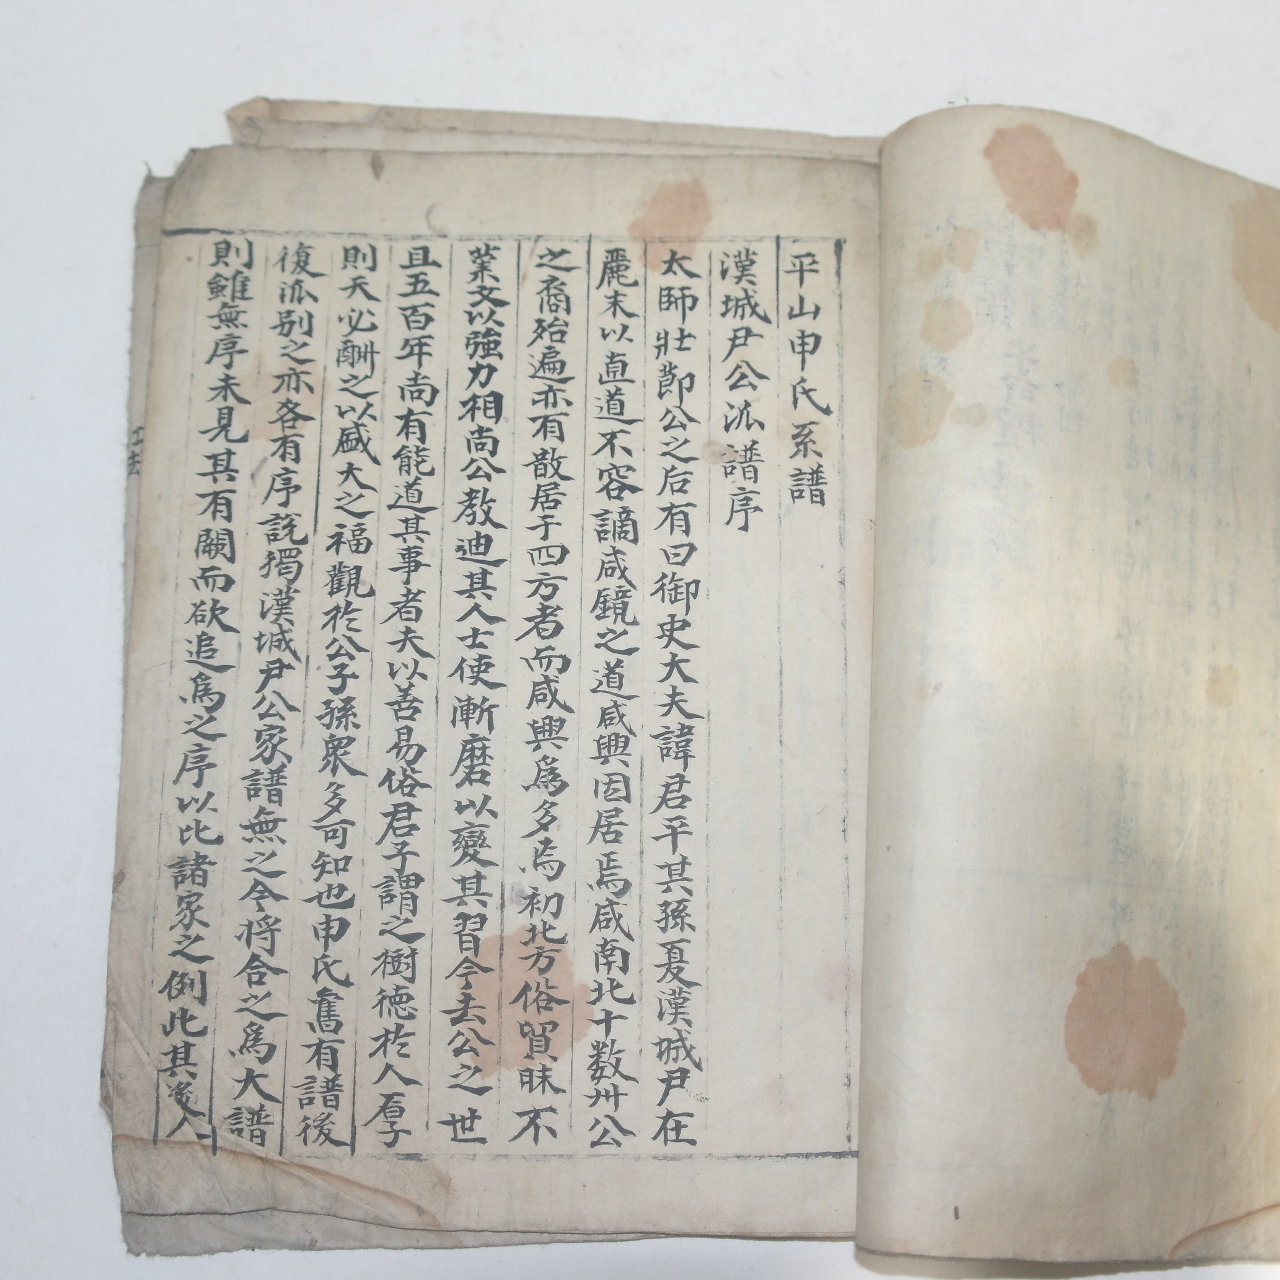 平山申氏系譜
漢城尹公派譜序
太師壯節公之后有曰御史大夫諱君平其孫夏漢城尹在
麗末以直道不容謫咸鏡之道咸興因居焉咸南北十數州公
之裔殆遍亦有散居于四方者而咸興爲多焉初北方俗貿昧不
業文以強力相尚公教迪其人士使漸磨以變其習今去公之世
且五百年尚有能道其事者夫以善易俗君子謂之樹德於人厚
則天必酬之以盛大之福觀於公子孫衆多可知也申氏舊有譜後
復派別之亦各有序說獨漢城尹公家譜無之今將合之爲大譜
則雖無序未見其有闕而欲追爲之序以比諸家之例此其後人